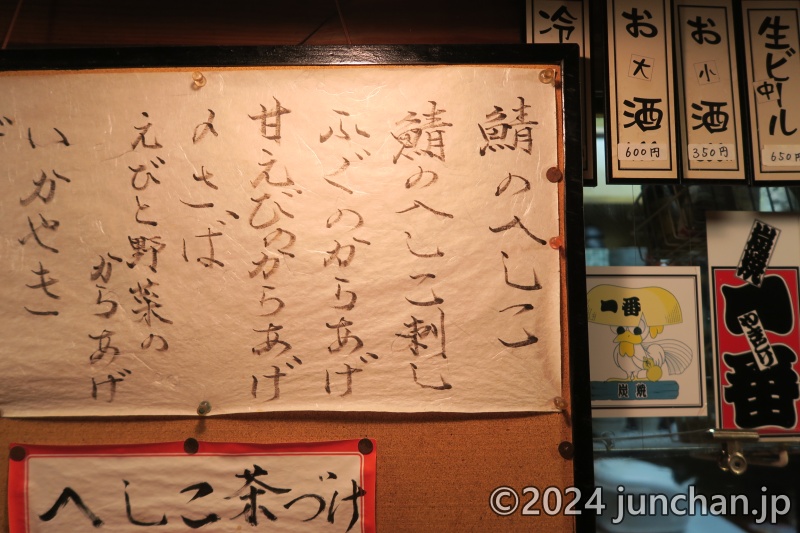 鯖のへしこ
鯖のへしこ刺し
ふぐのからあげ
甘えびのからあげ
〆さば
えびと野菜の
からあげ
いかやき
へしこ茶づけ
冷
お大酒
600円
お小酒
350円
生ビール
中
650
一番
炭焼
炭焼
一番
やきとり
©2024 junchan.jp